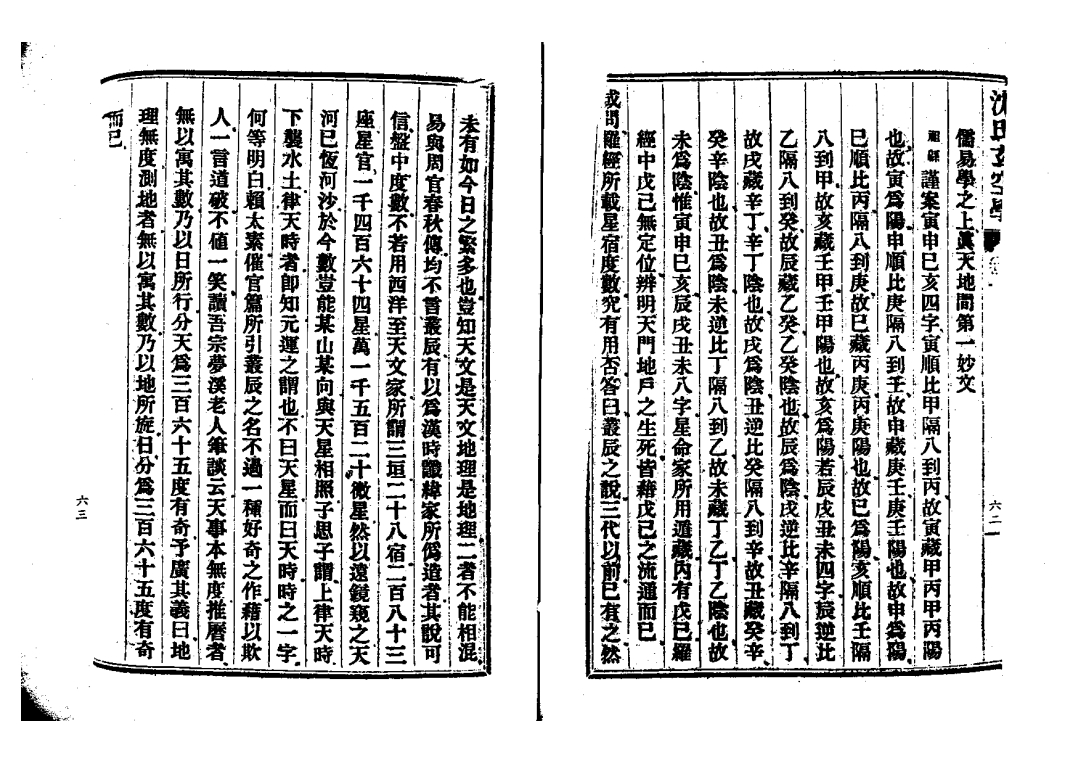 沈氏玄空學
六二
儒易學之上眞天地間第一妙文
祖緜謹案寅申巳亥四字寅順比甲隔八到丙故寅藏甲丙甲丙陽
也故寅爲陽申順比庚隔八到壬故申藏庚壬庚壬陽也故申爲陽
巳順比丙隔八到庚故巳藏丙庚丙庚陽也故巳爲陽亥順比壬隔
八到甲故亥藏壬甲壬甲陽也故亥爲陽若辰戌丑未四字辰逆比
乙隔八到癸故辰藏乙癸乙癸陰也故辰爲陰戌逆比辛隔八到丁
故戌藏辛丁辛丁陰也故戌爲陰丑逆比癸隔八到辛故丑藏癸辛
癸辛陰也故丑爲陰未逆比丁隔八到乙故未藏丁乙丁乙陰也故
未爲陰惟寅申巳亥辰戌丑未八字星命家所用遁藏內有戊己羅
經中戊己無定位辨明天門地戶之生死皆藉戊己之流通而已
或問羅經所載星宿度數究有用否答曰叢辰之說三代以前已有之然
未有如今日之繁多也豈知天文是天文地理是地理二者不能相混
易與周官春秋傳均不言叢辰有以爲漢時讖緯家所僞造者其說可
信盤中度數不若用西洋至天文家所謂三垣二十八宿二百八十三
座星官一千四百六十四星萬一千五百二十微星然以遠鏡窺之天
河已恆河沙於今數豈能某山某向與天星相照子思子謂上律天時
下襲水土律天時者卽知元運之謂也不曰天星而曰天時時之一字
何等明白賴太素催官篇所引叢辰之名不過一種好奇之作藉以欺
人一言道破不値一笑讀吾宗夢溪老人筆談云天事本無度推曆者
無以寓其數乃以日所行分天爲三百六十五度有奇予廣其義曰地
理無度測地者無以寓其數乃以地所旋日分爲三百六十五度有奇
而已
六三